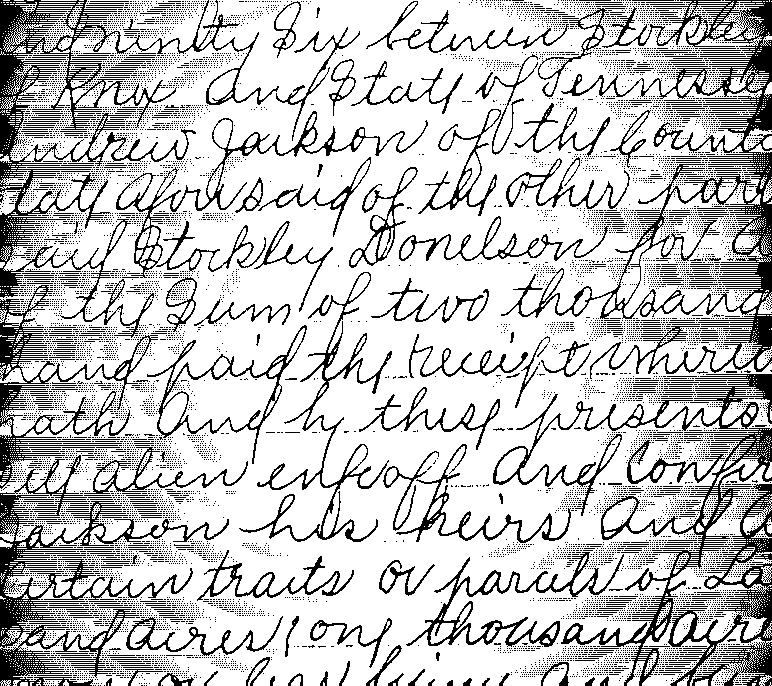 and ninity Six between Stockley
of Knox and State of Tennessee
Andrew Jackson of the County
State aforesaid of the other part
said Stockley Donelson for
of the Sum of two thousand
hand paid the receipt where
hath and by these presents
sell alien enfeoff and confir
Jackson his heirs and
Certain tracts or parcels of La
sand acres, one thousand acre
more or less being and